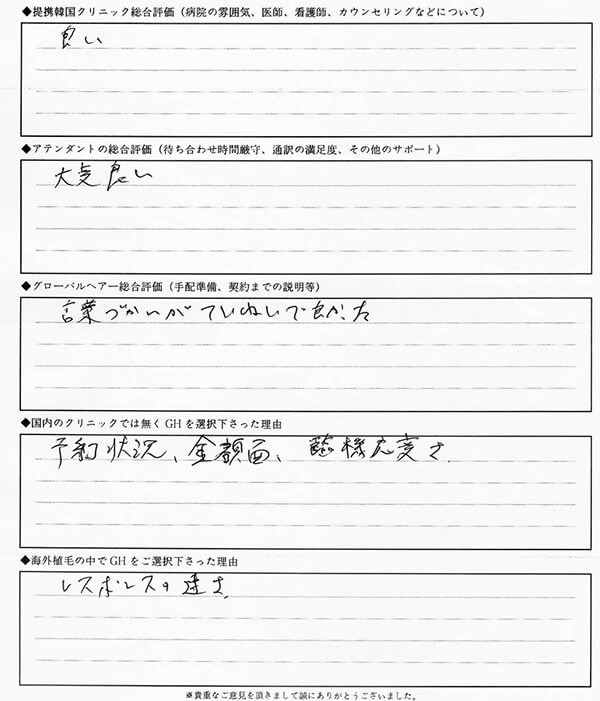 ◆提携韓国クリニック総合評価（病院の雰囲気、医師、看護師、カウンセリングなどについて）
良い
◆アテンダントの総合評価（待ち合わせ時間厳守、通訳の満足度、その他のサポート）
大変良い
◆グローバルヘアー総合評価（手配準備、契約までの説明等）
言葉づかいがていねいで良かった
◆国内のクリニックでは無くGHを選択下さった理由
予約状況、金額面、臨機応変さ
◆海外植毛の中でGHをご選択下さった理由
レスポンスの速さ
※貴重なご意見を頂きまして誠にありがとうございました。